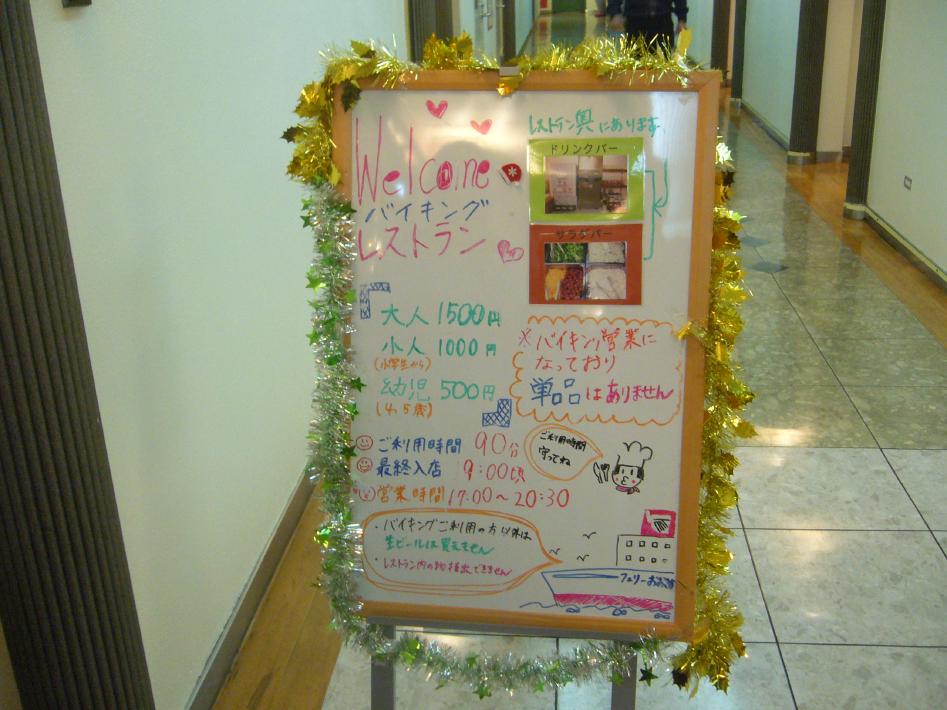 Welcome
バイキング
レストラン
レストラン奥にあります。
ドリンクバー
サラダバー
大人 1500円
小人 1000円
(小学生から)
幼児 500円
(4,5歳)
※バイキング営業に
なっており
単品はありません
ご利用時間 90分
最終入店 19:00頃
営業時間 17:00~20:30
ご利用時間
守ってね
・バイキングご利用の方以外は
生ビールは買えません
・レストラン内の物 持出できません
フェリー